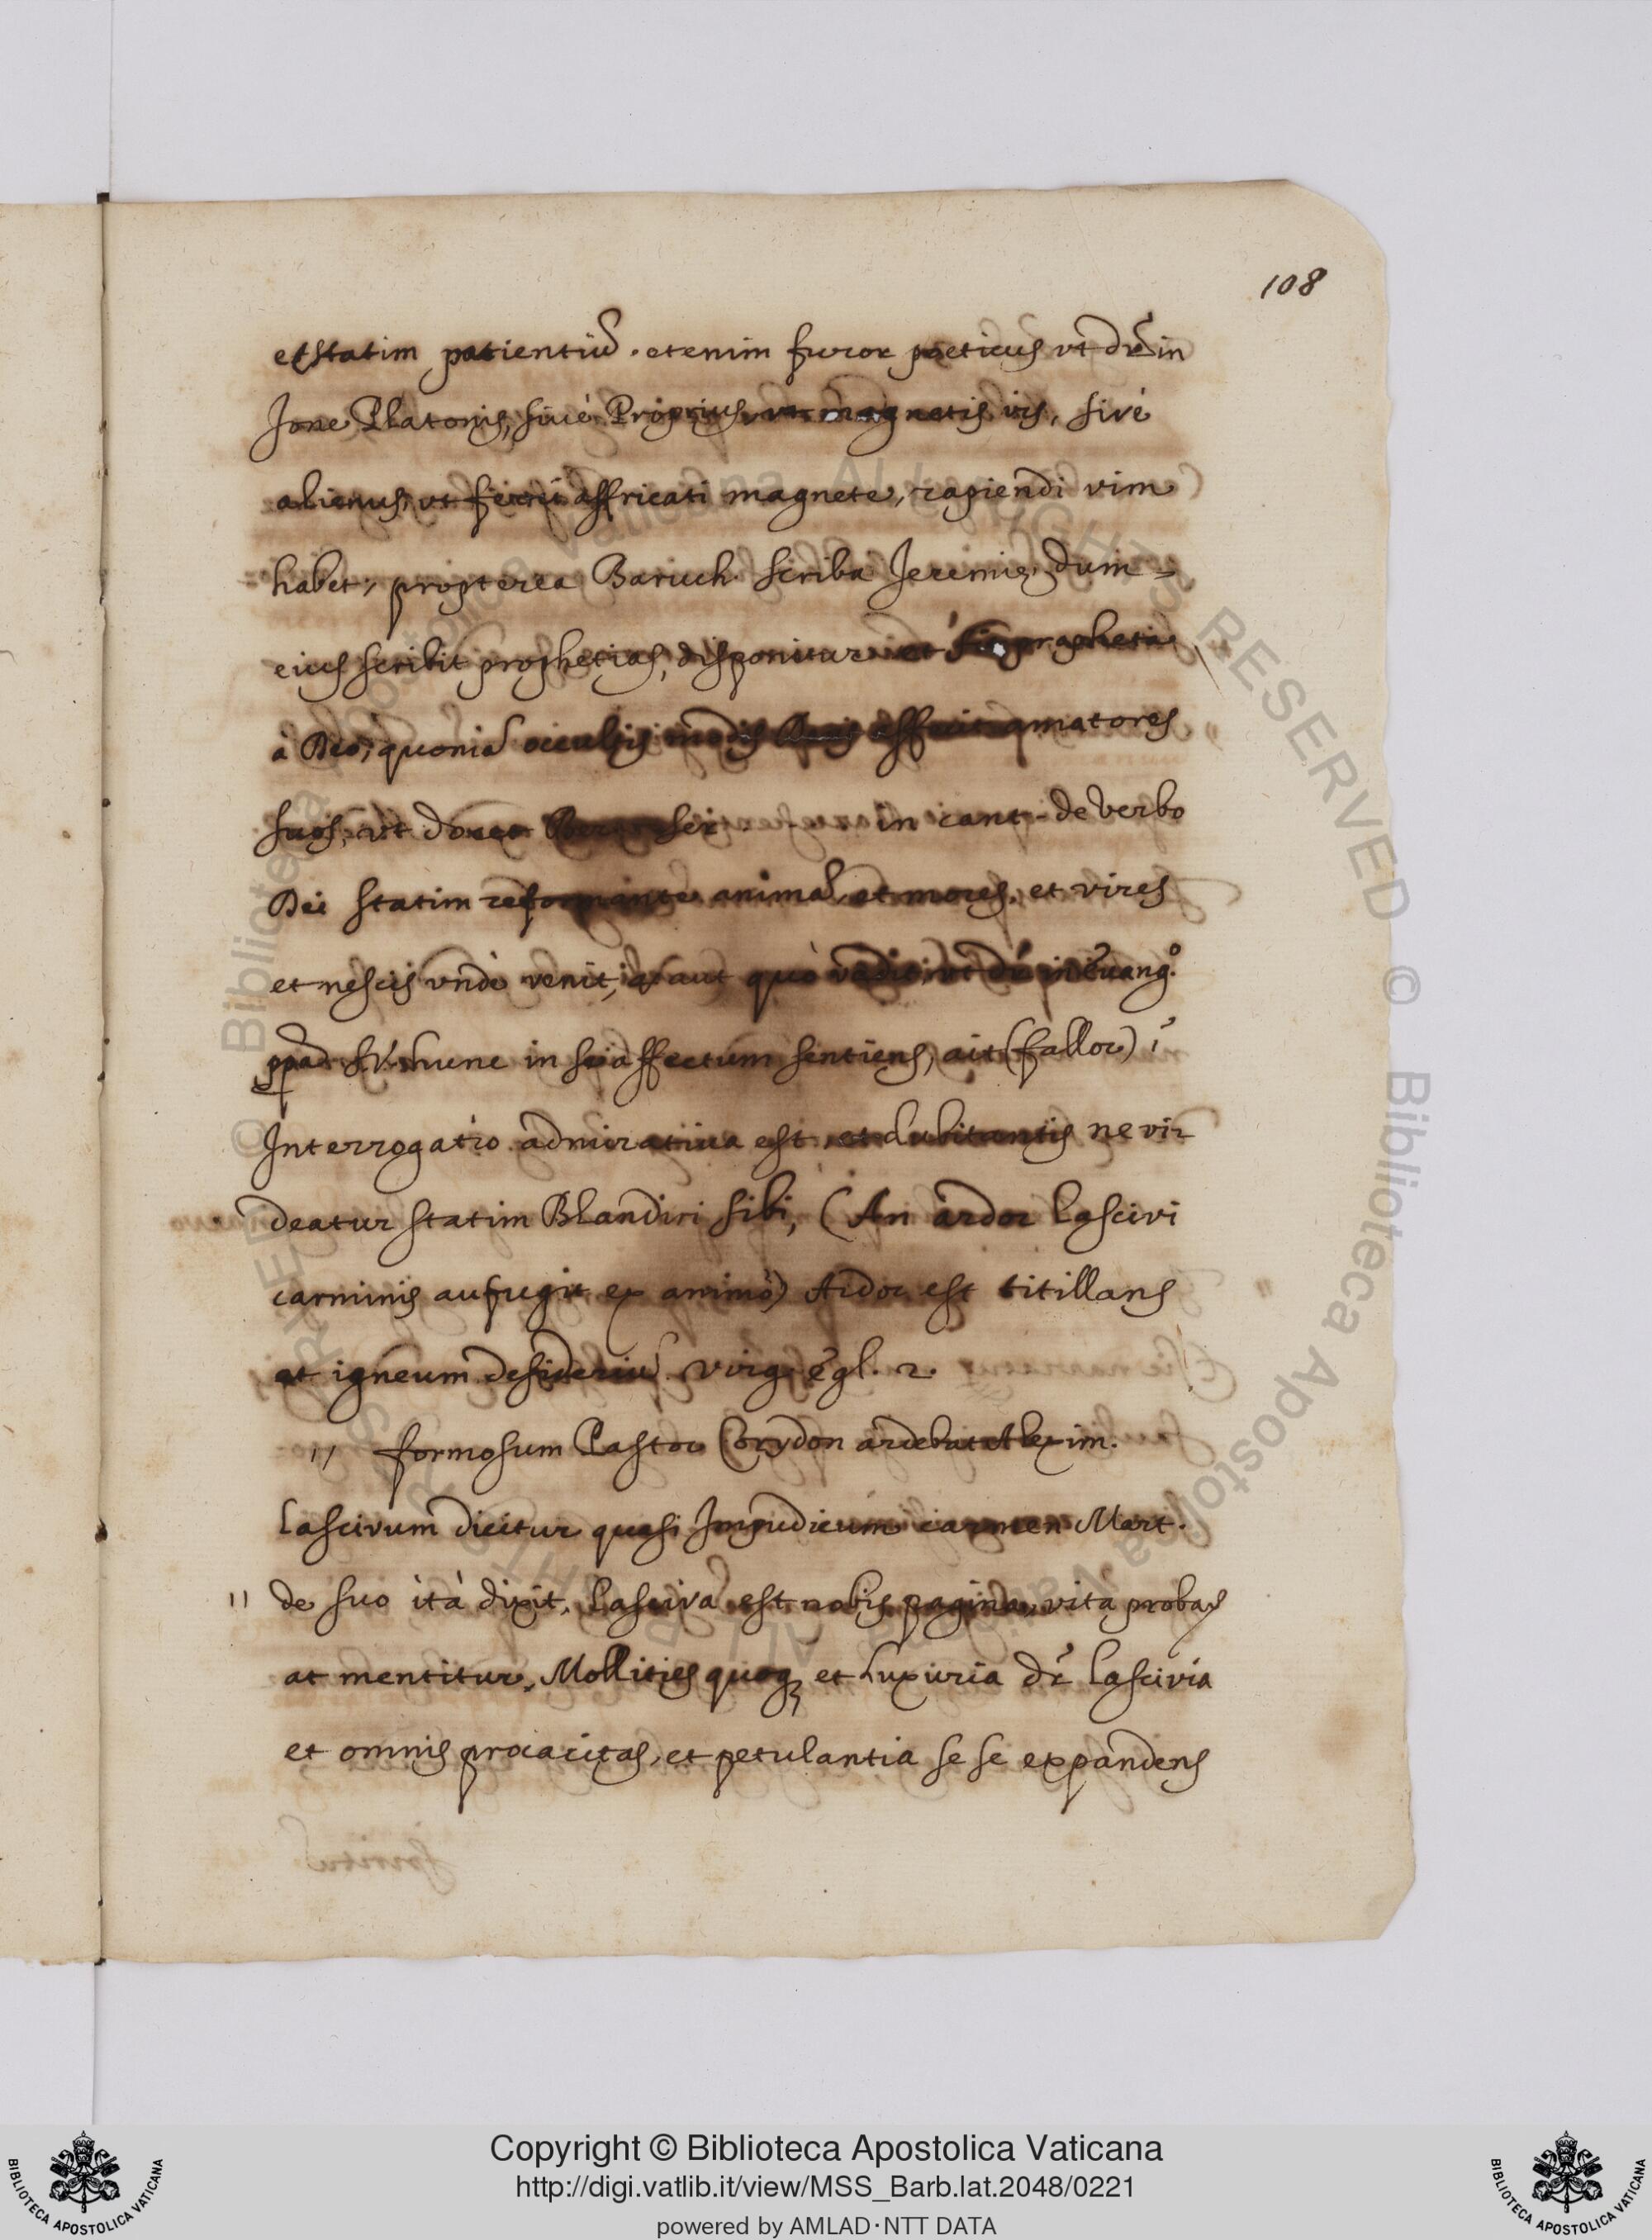 108
et statim patientiũ. etenim furor poeticus vt dr̃ in
Jone Platonis, siuè Proprius, vt magnetis vis, sivè
alienus, vt ferri affricati magnete, rapiendi vim
habet, propterea Baruch scriba Jeremię, dum =
eius scribit prophetias, disponitur et prophetia
à Deo, quoniã occultis modis Deus afficit amatores
suos, vt docet ser. in cant. de verbo
Dei statim reformante animã, et mores, et vires
et nescis vndè venit, aut quò vadit, vt dr̃ in Euang.º
hunc in se affectum sentiens, ait (fallor)
Interrogatio admirativa est et dubitantis ne vi=
deatur statim Blandiri sibi, (An ardor lascivi
carminis aufugit ex animo) Ardor est titillans
et igneum desideriũ. virg. egl. 2.
" formosum Pastor Corydon ardebat Alexim.
lascivum dicitur quasi Impudicum carmen Mart.
" de suo ità dixit, lasciva est nobis pagina, vita proba,
at mentitur, Mollities quoq; et luxuria dr̃ lascivia
et omnis procacitas, et petulantia se se expandens
Copyright © Biblioteca Apostolica Vaticana
http://digi.vatlib.it/view/MSS_Barb.lat.2048/0221
powered by AMLAD·NTT DATA
BIBLIOTECA APOSTOLICA VATICANA
BIBLIOTECA APOSTOLICA VATICANA